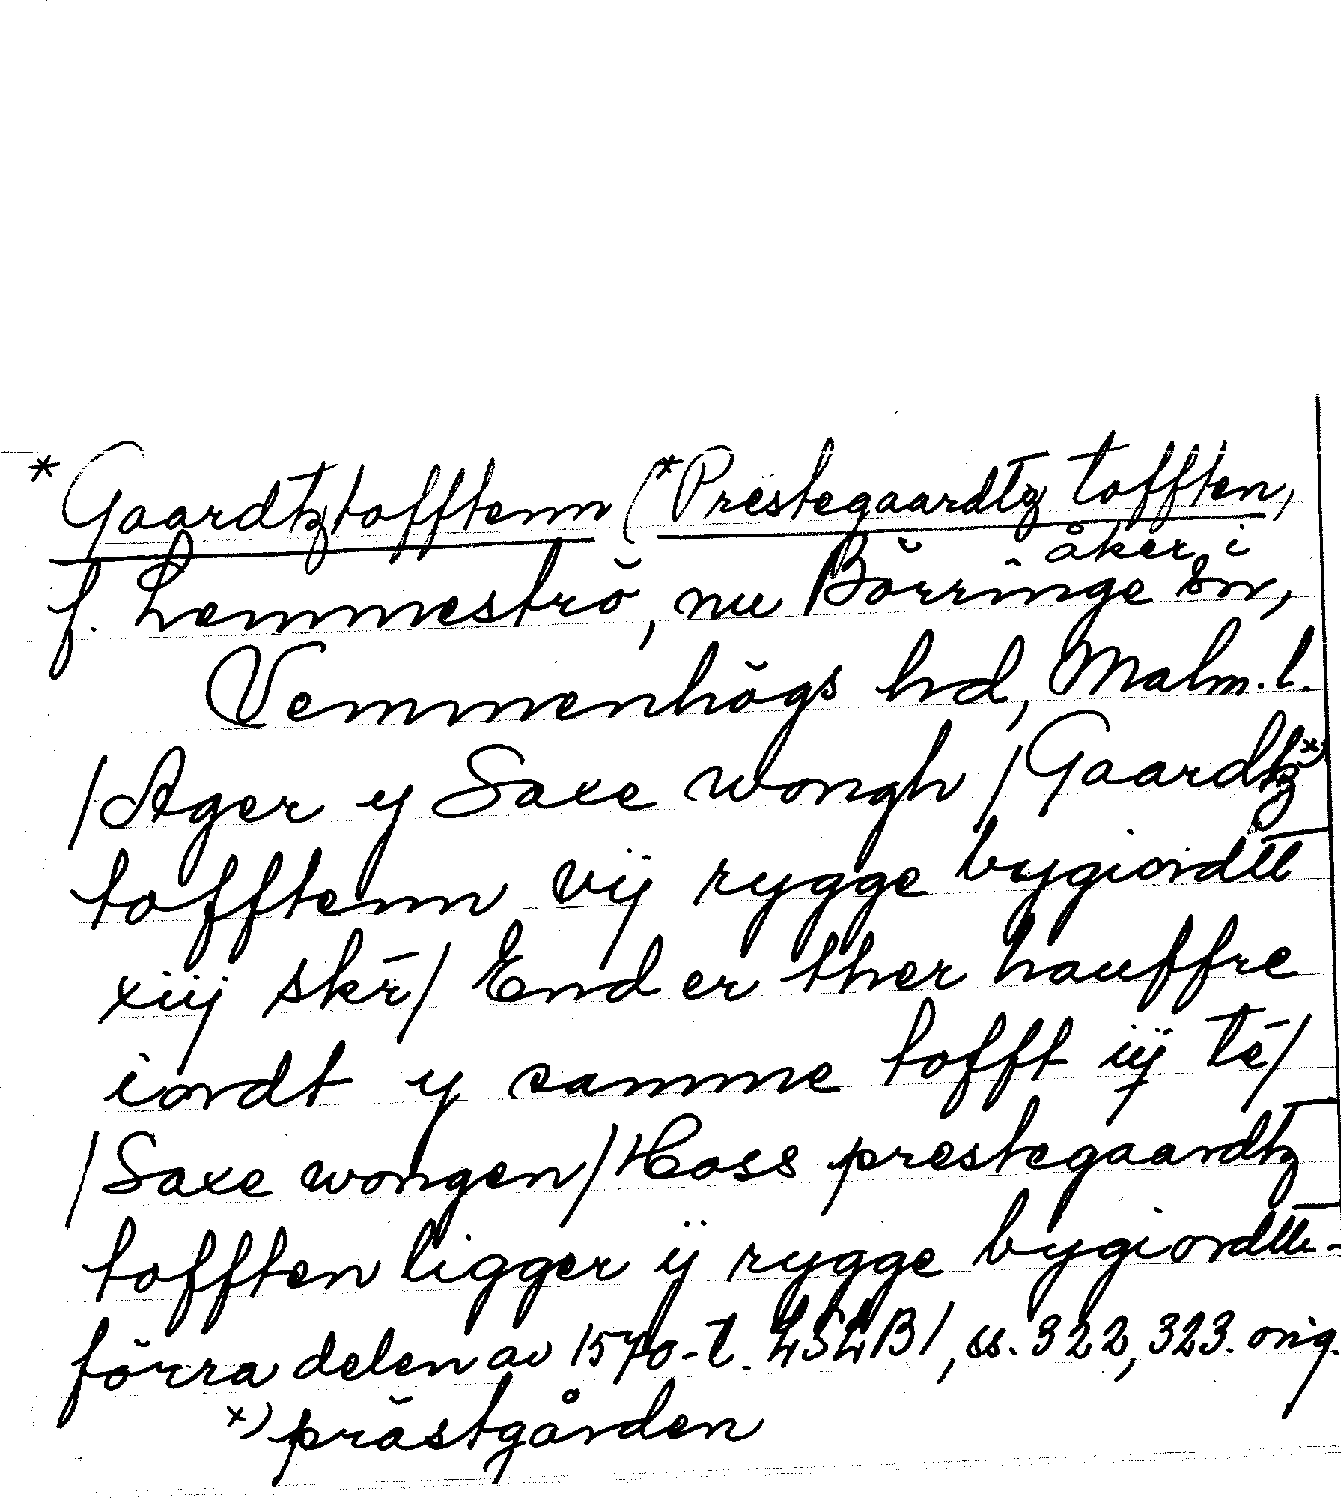 * Gaardtztofftenn (* Prestegaardtz tofften,
åker i
f. Lemmeströ, nu Börringe sn,
Vemmenhögs hd, Malm. l.
/Ager y Saxe wongh / Gaardtz x)
tofftenn vij rygge bygiordtt
xiij skr̄/ End er ther hauffre
iordt y samme tofft iij te/
/Saxe wongen/ Hoss prestegaardtz
tofften ligger ij rygge bygiordtt -
förra delen av 1570-t. LSLB1, ss. 322, 323. orig.
x) prästgården